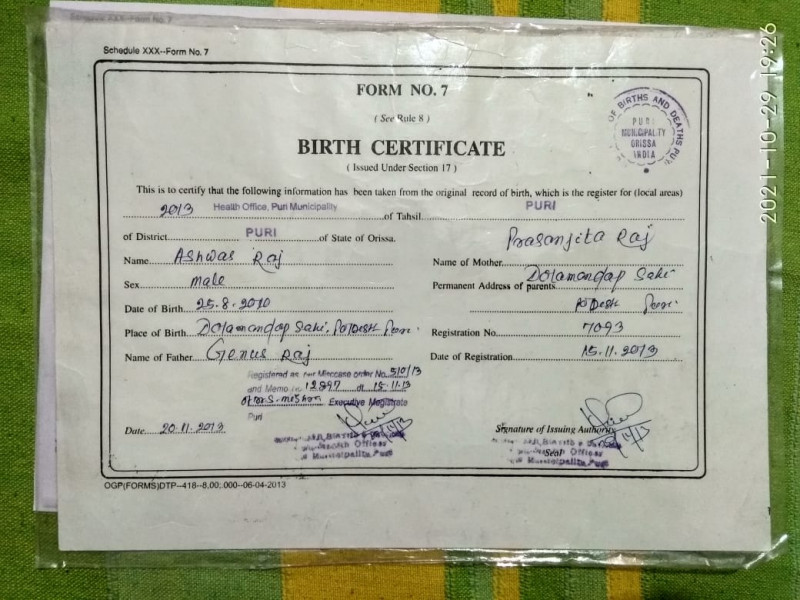 Schedule XXX--Form No. 7
FORM NO. 7
( See Rule 8 )
BIRTH CERTIFICATE
( Issued Under Section 17 )
OF BIRTHS AND DEATHS PURI
PURI
MUNICIPALITY
ORISSA
INDIA
This is to certify that the following information has been taken from the original record of birth, which is the register for (local areas)
2013 Health Office, Puri Municipality of Tahsil PURI
of District PURI of State of Orissa.
Name Ashwas Raj
Name of Mother Prasanjita Raj
Sex male
Permanent Address of parents Dolamandap Sahi
Date of Birth 25.8.2010
Place of Birth Dolamandap Sahi,
Registration No. 7093
Name of Father Genus Raj
Date of Registration 15.11.2013
Registered as per Misccase order No. 510/13
and Memo no 12897 dt 15.11.13
Executive Magistrate
Puri
Date 20.11.2013
Signature of Issuing Authority
Seal
Health Officer
Municipality Puri
Health Officer
Municipality Puri
OGP(FORMS)DTP--418--8,00,:000--06-04-2013
2021-10-29 19:26